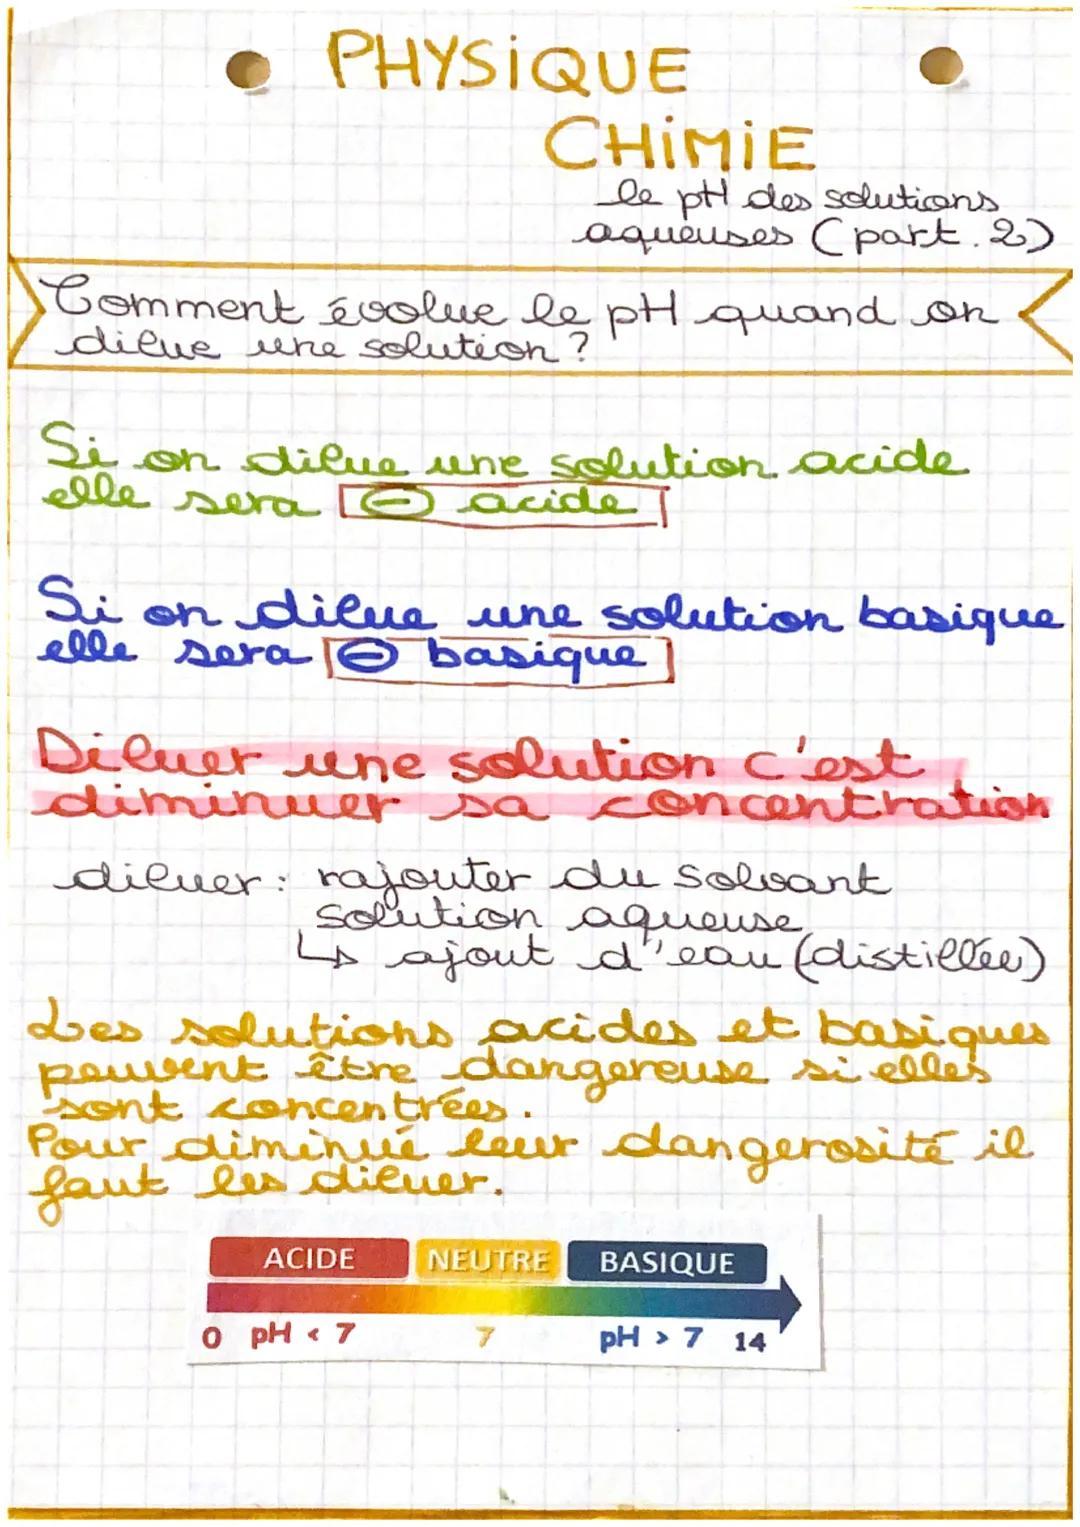 PHYSIQUE
CHIMIE
le pH des solutions
aqueuses (part. 2)
Comment évolue le pH quand on
dilue une solution ?
Si on dilue une solution acide
elle sera ⊖ acide
Si on dilue une solution basique
elle sera ⊖ basique
Diluer une solution c'est
diminuer sa concentration
diluer : rajouter du solvant
solution aqueuse
↳ ajout d'eau (distillée)
Les solutions acides et basiques
peuvent être dangereuse si elles
sont concentrées.
Pour diminué leur dangerosité il
faut les diluer.
ACIDE NEUTRE BASIQUE
0 pH < 7 7 pH > 7 14